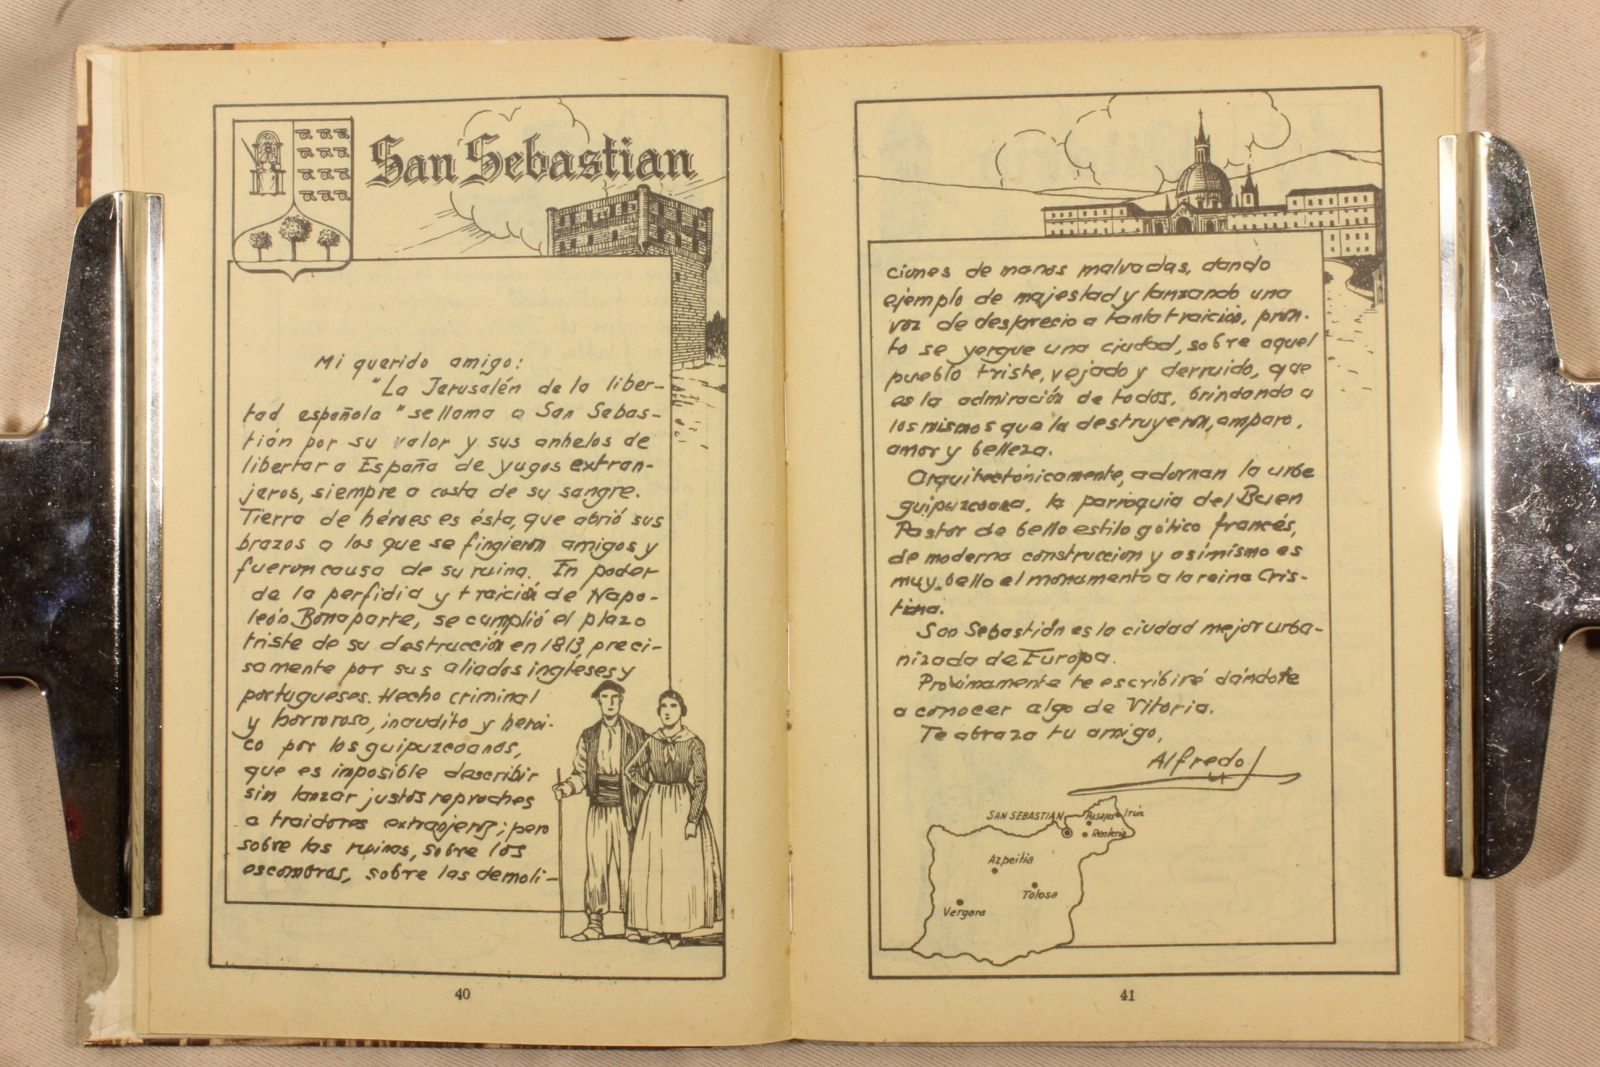 San Sebastian
Mi querido amigo:
"La Jerusalén de la liber-
tad española" se llama a San Sebas-
tián por su valor y sus anhelos de
libertar a España de yugos extran-
jeros, siempre a costa de su sangre.
Tierra de héroes es ésta, que abrió sus
brazos a los que se fingieron amigos y
fueron causa de su ruina. En poder
de la perfidia y traición de Napo-
león Bonaparte, se cumplió el plazo
triste de su destrucción en 1813, preci-
samente por sus aliados ingleses y
portugueses. Hecho criminal
y horroroso, inaudito y heroi-
co por los guipuzcoanos,
que es imposible describir
sin lanzar justos reproches
a traidores extranjeros; pero
sobre las ruinas, sobre los
escombros, sobre las demoli-
40
ciones de manos malvadas, dando
ejemplo de majestad y lanzando una
voz de desprecio a tanta traición, pron-
to se yergue una ciudad, sobre aquel
pueblo triste, vejado y derruido, que
es la admiración de todos, brindando a
los mismos que la destruyeron, amparo,
amor y belleza.
Arquitectónicamente, adornan la urbe
guipuzcoana, la parroquia del Buen
Pastor de bello estilo gótico francés,
de moderna construccion y asimismo es
muy bello el monumento a la reina Cris-
tina.
San Sebastián es la ciudad mejor urba-
nizada de Europa.
Próximamente te escribiré dándote
a conocer algo de Vitoria.
Te abraza tu amigo,
Alfredo
SAN SEBASTIAN
Pasajes
Irún
Rentería
Azpeitia
Tolosa
Vergara
41